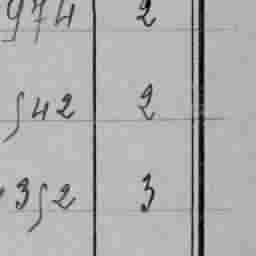 974 2
542 2
352 3